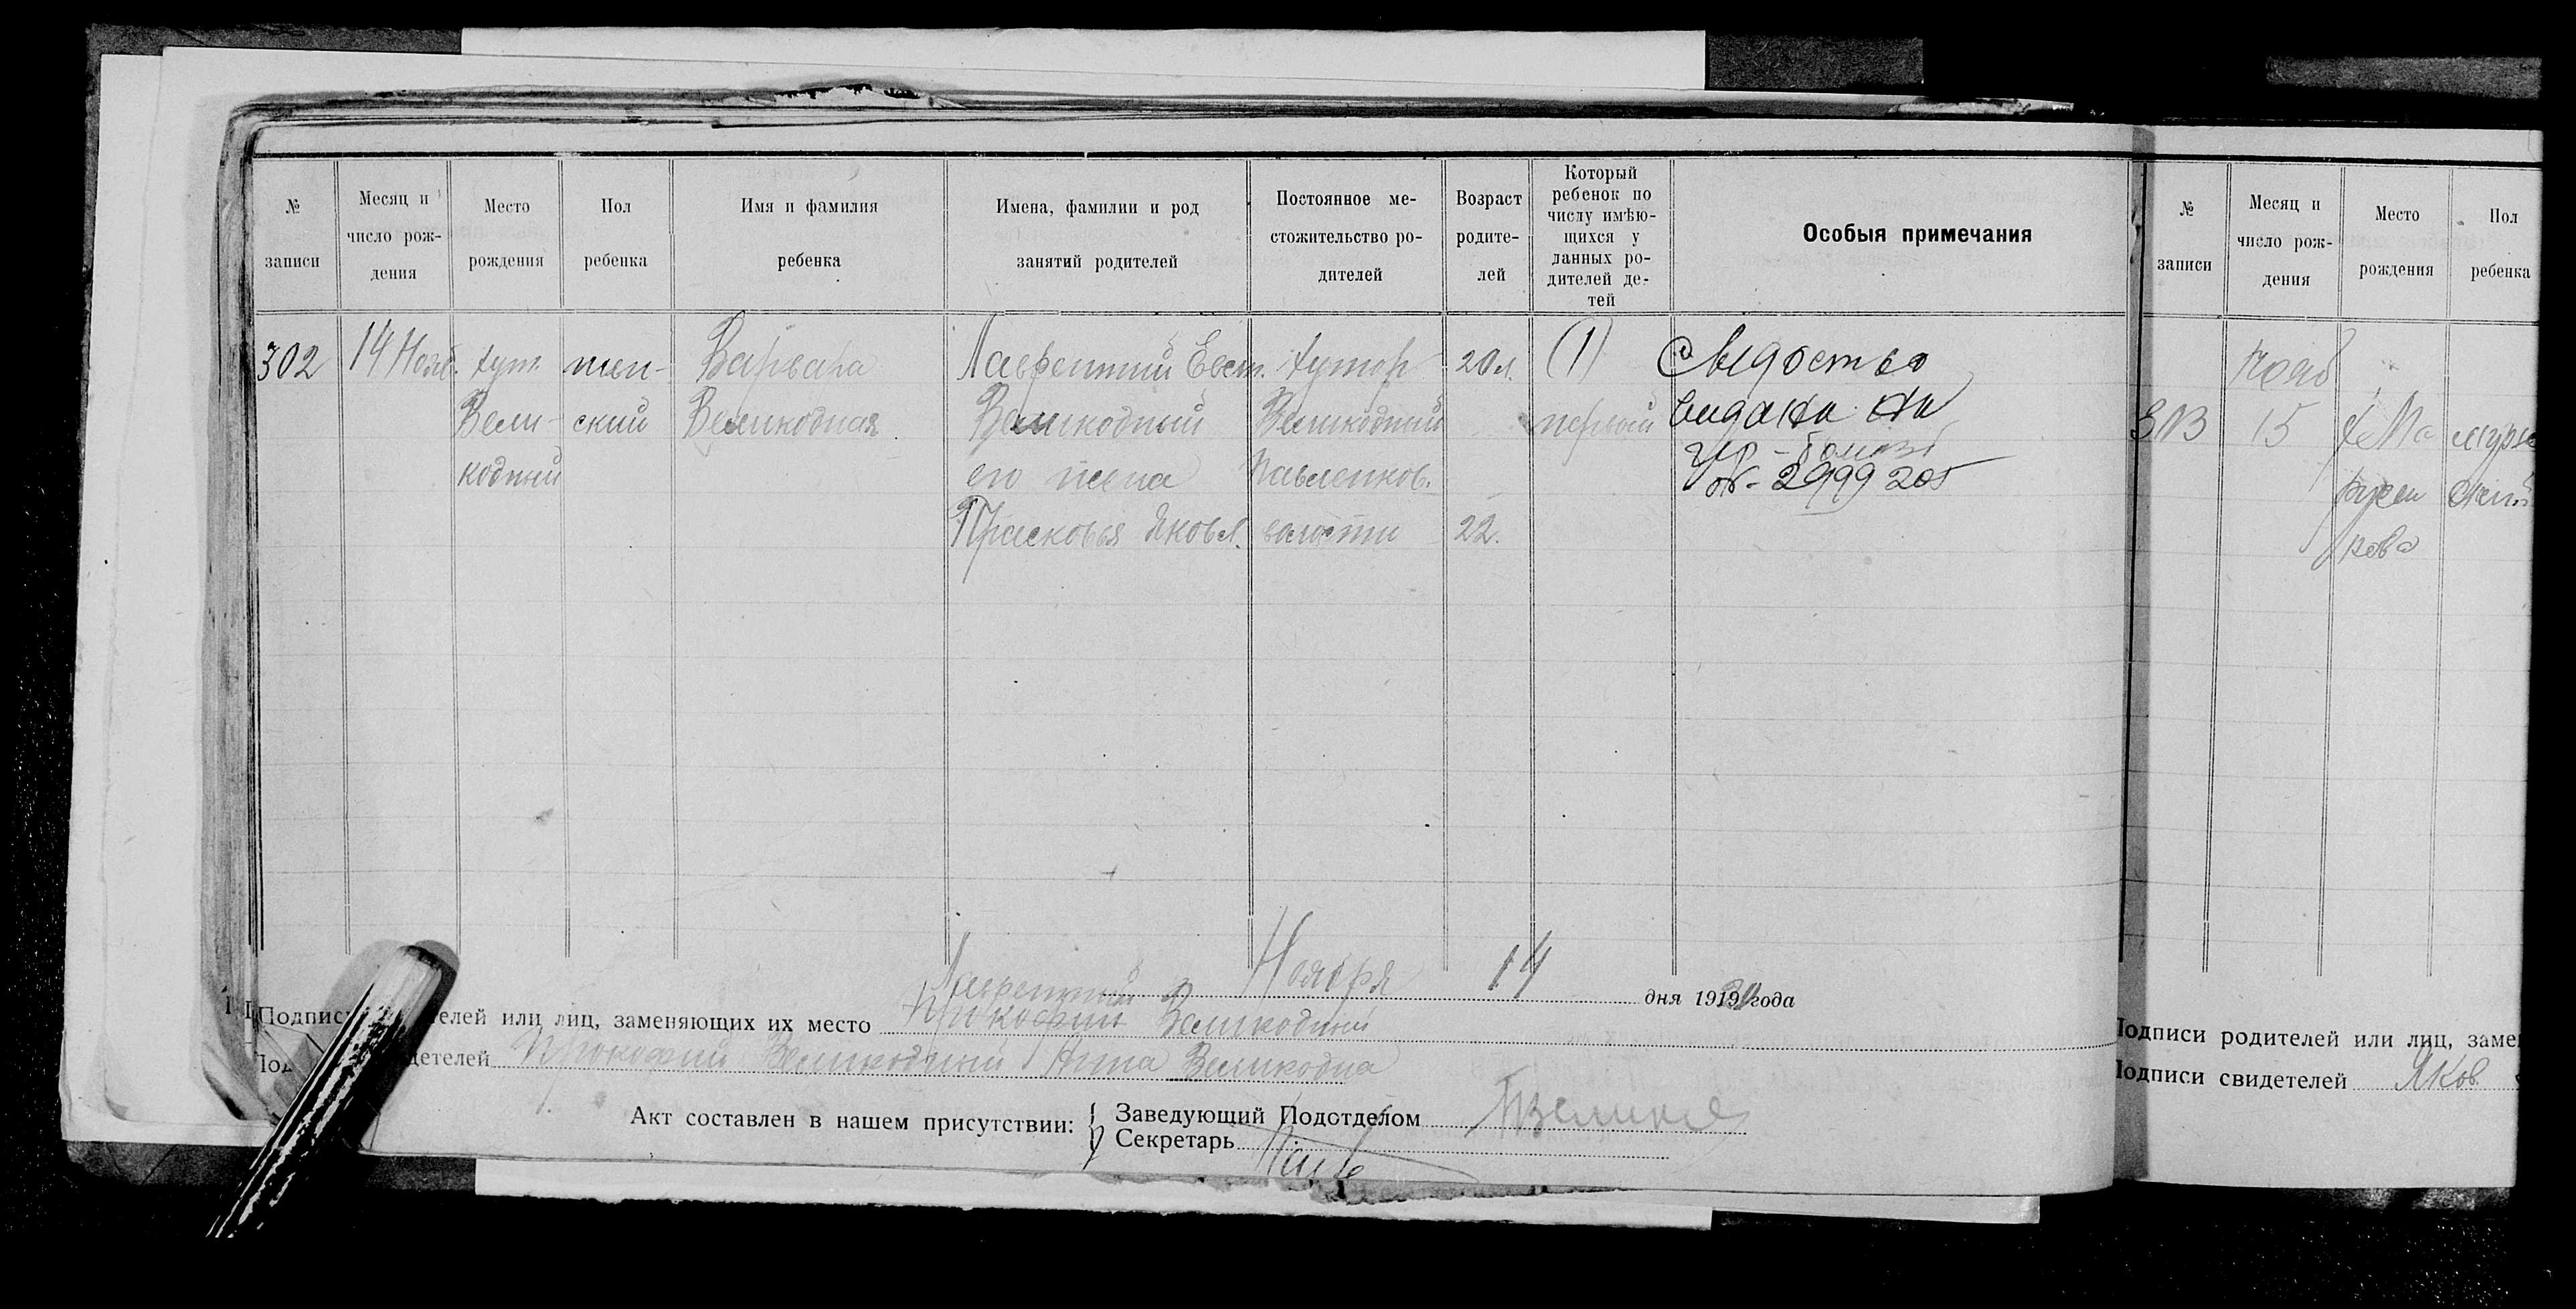 № записи
Месяц и число рождения
Место рождения
Пол ребенка
Имя и фамилия ребенка
Имена, фамилии и род занятий родителей
Постоянное местожительство родителей
Возраст родителей
Который ребенок по числу имѣющихся у данных родителей детей
Особыя примечания
302
14 Нояб.
хут.
Вели-
кодный
жен-
ский
Варвара
Великодная
Лаврентий Евст.
Великодный
его жена
Прасковья Яковл.
хутор
Великодный
Павленков.
волости
20 л.
22.
(1)
первый
Свидоство
видана на
№ 2999205
Ноября 14 дня 1919 года
Лаврентий
Подписи родителей или лиц, заменяющих их место Прокофий Великодный
детелей Прокофий Великодный Анна Великодна
Акт составлен в нашем присутствии:
Заведующий Подотделом
Секретарь
№ записи
Месяц и число рождения
Место рождения
Пол ребенка
303
Нояб
15
Подписи родителей или лиц, заме
Подписи свидетелей Яков